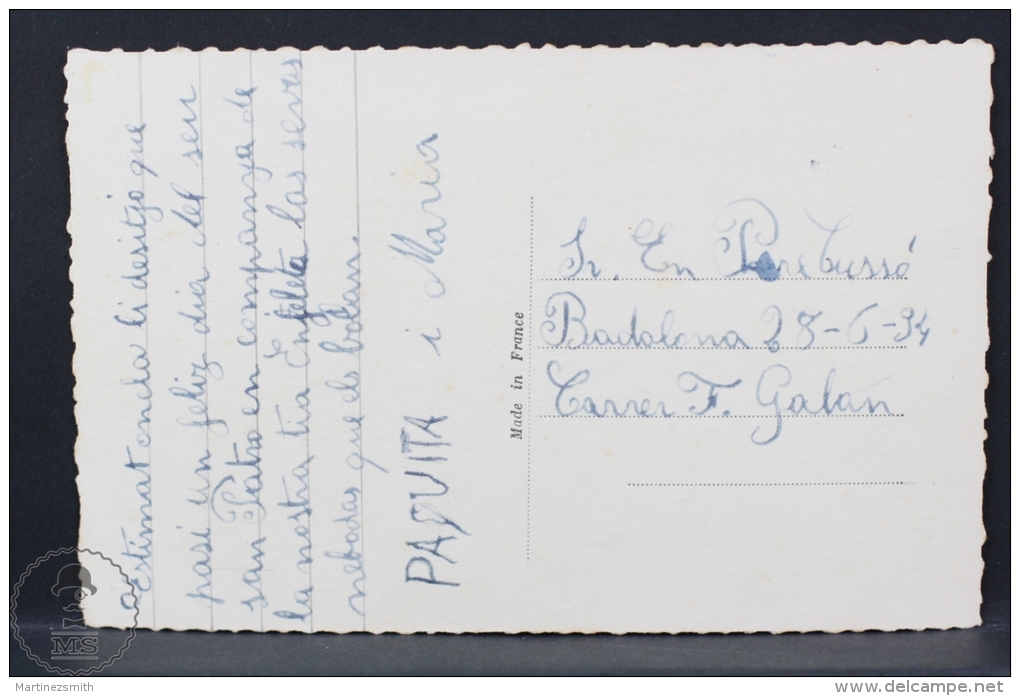 Estimat oncla li desitjo que
pasi un feliz dia del seu
san Patro en companya de
la nostra tia Enjeleta las sevas
nebodas que els bolan.
PAQUITA i Maria
Made in France
Sr. En Pere Cussó
Badalona 28-6-34
Carrer F. Galán
MS
Martinezsmith
www.delcampe.net